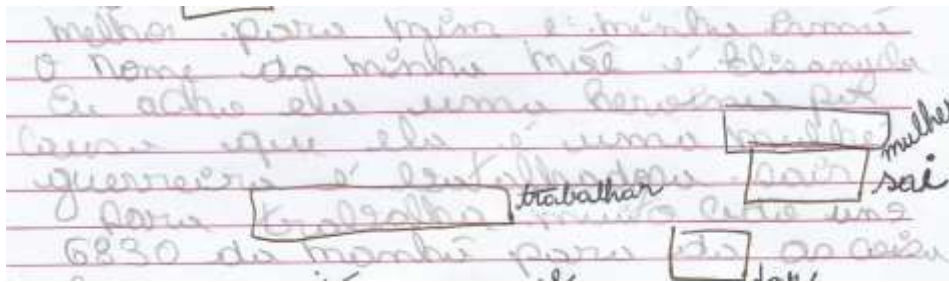 melhor para mim e minha irmã
O nome da minha mãe é Elisangela
Eu acho ela uma heroina por
causa que ela é uma mulhe mulhe
guerreira é batalhadora sair sai
para trabalha trabalhar muito cedo
6830 da manhã para da as coisa
dar